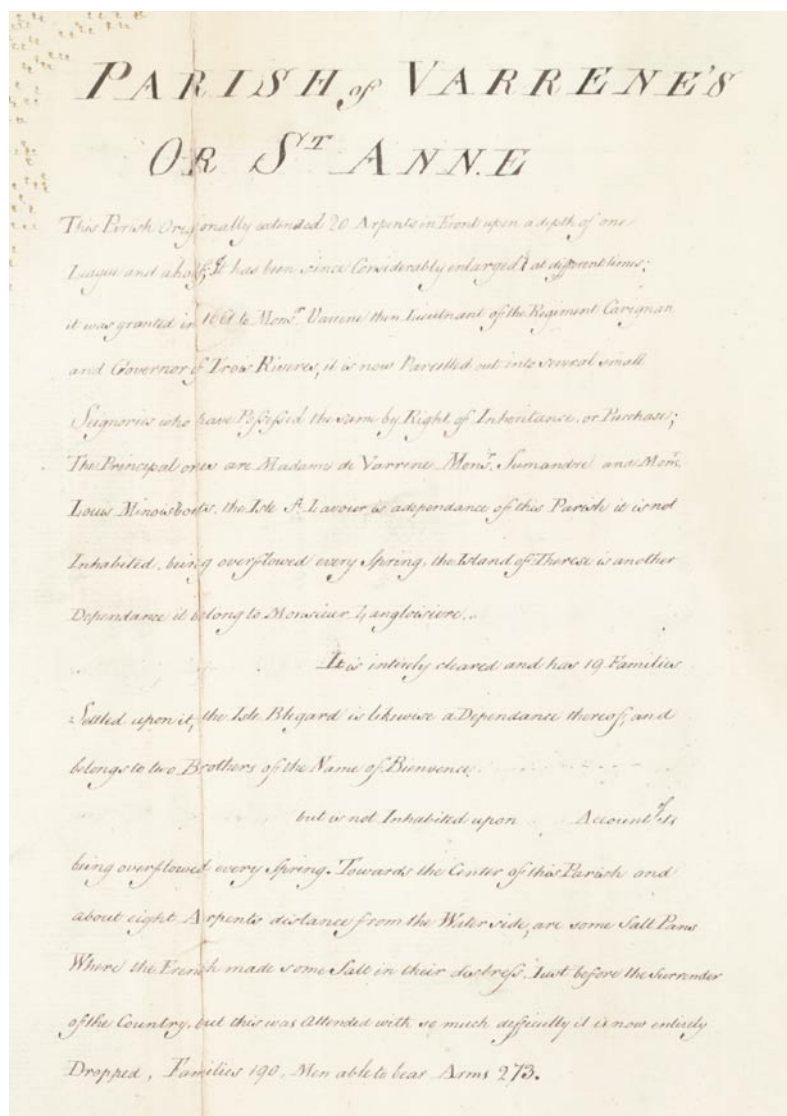 PARISH of VARRENE'S
OR ST ANNE
This Parish Originally extended 20 Arpents in Front upon a depth of one
League and a half; It has been since Considerably enlarged at different times;
it was granted in to Monsr. Varrene then Lieutnant of the Regiment Carignan
and Governor of Trois Rivieres, it is now Parcelled out into several small
Seignories who have Possessed the same by Right of Inheritance, or Purchase;
The Principal ones are Madame de Varrene Monsr. and
Louis the Isle St. is a dependance of this Parish it is not
Inhabited, being overflowed every Spring, the Island of Therese is another
Dependance it belong to Monsieur
It is intirely cleared and has 19 Families
Settled upon it, the Isle is likewise a Dependance thereof, and
belongs to two Brothers of the Name of
but is not Inhabited upon Account of its
being overflowed every Spring. Towards the Center of this Parish and
about eight Arpents distance from the Water side, are some Salt Pans
Where the French made some Salt in their distress, Just before the Surrender
of the Country, but this was Attended with so much difficulty it is now entirely
Dropped, Families 190, Men able to bear Arms 273.